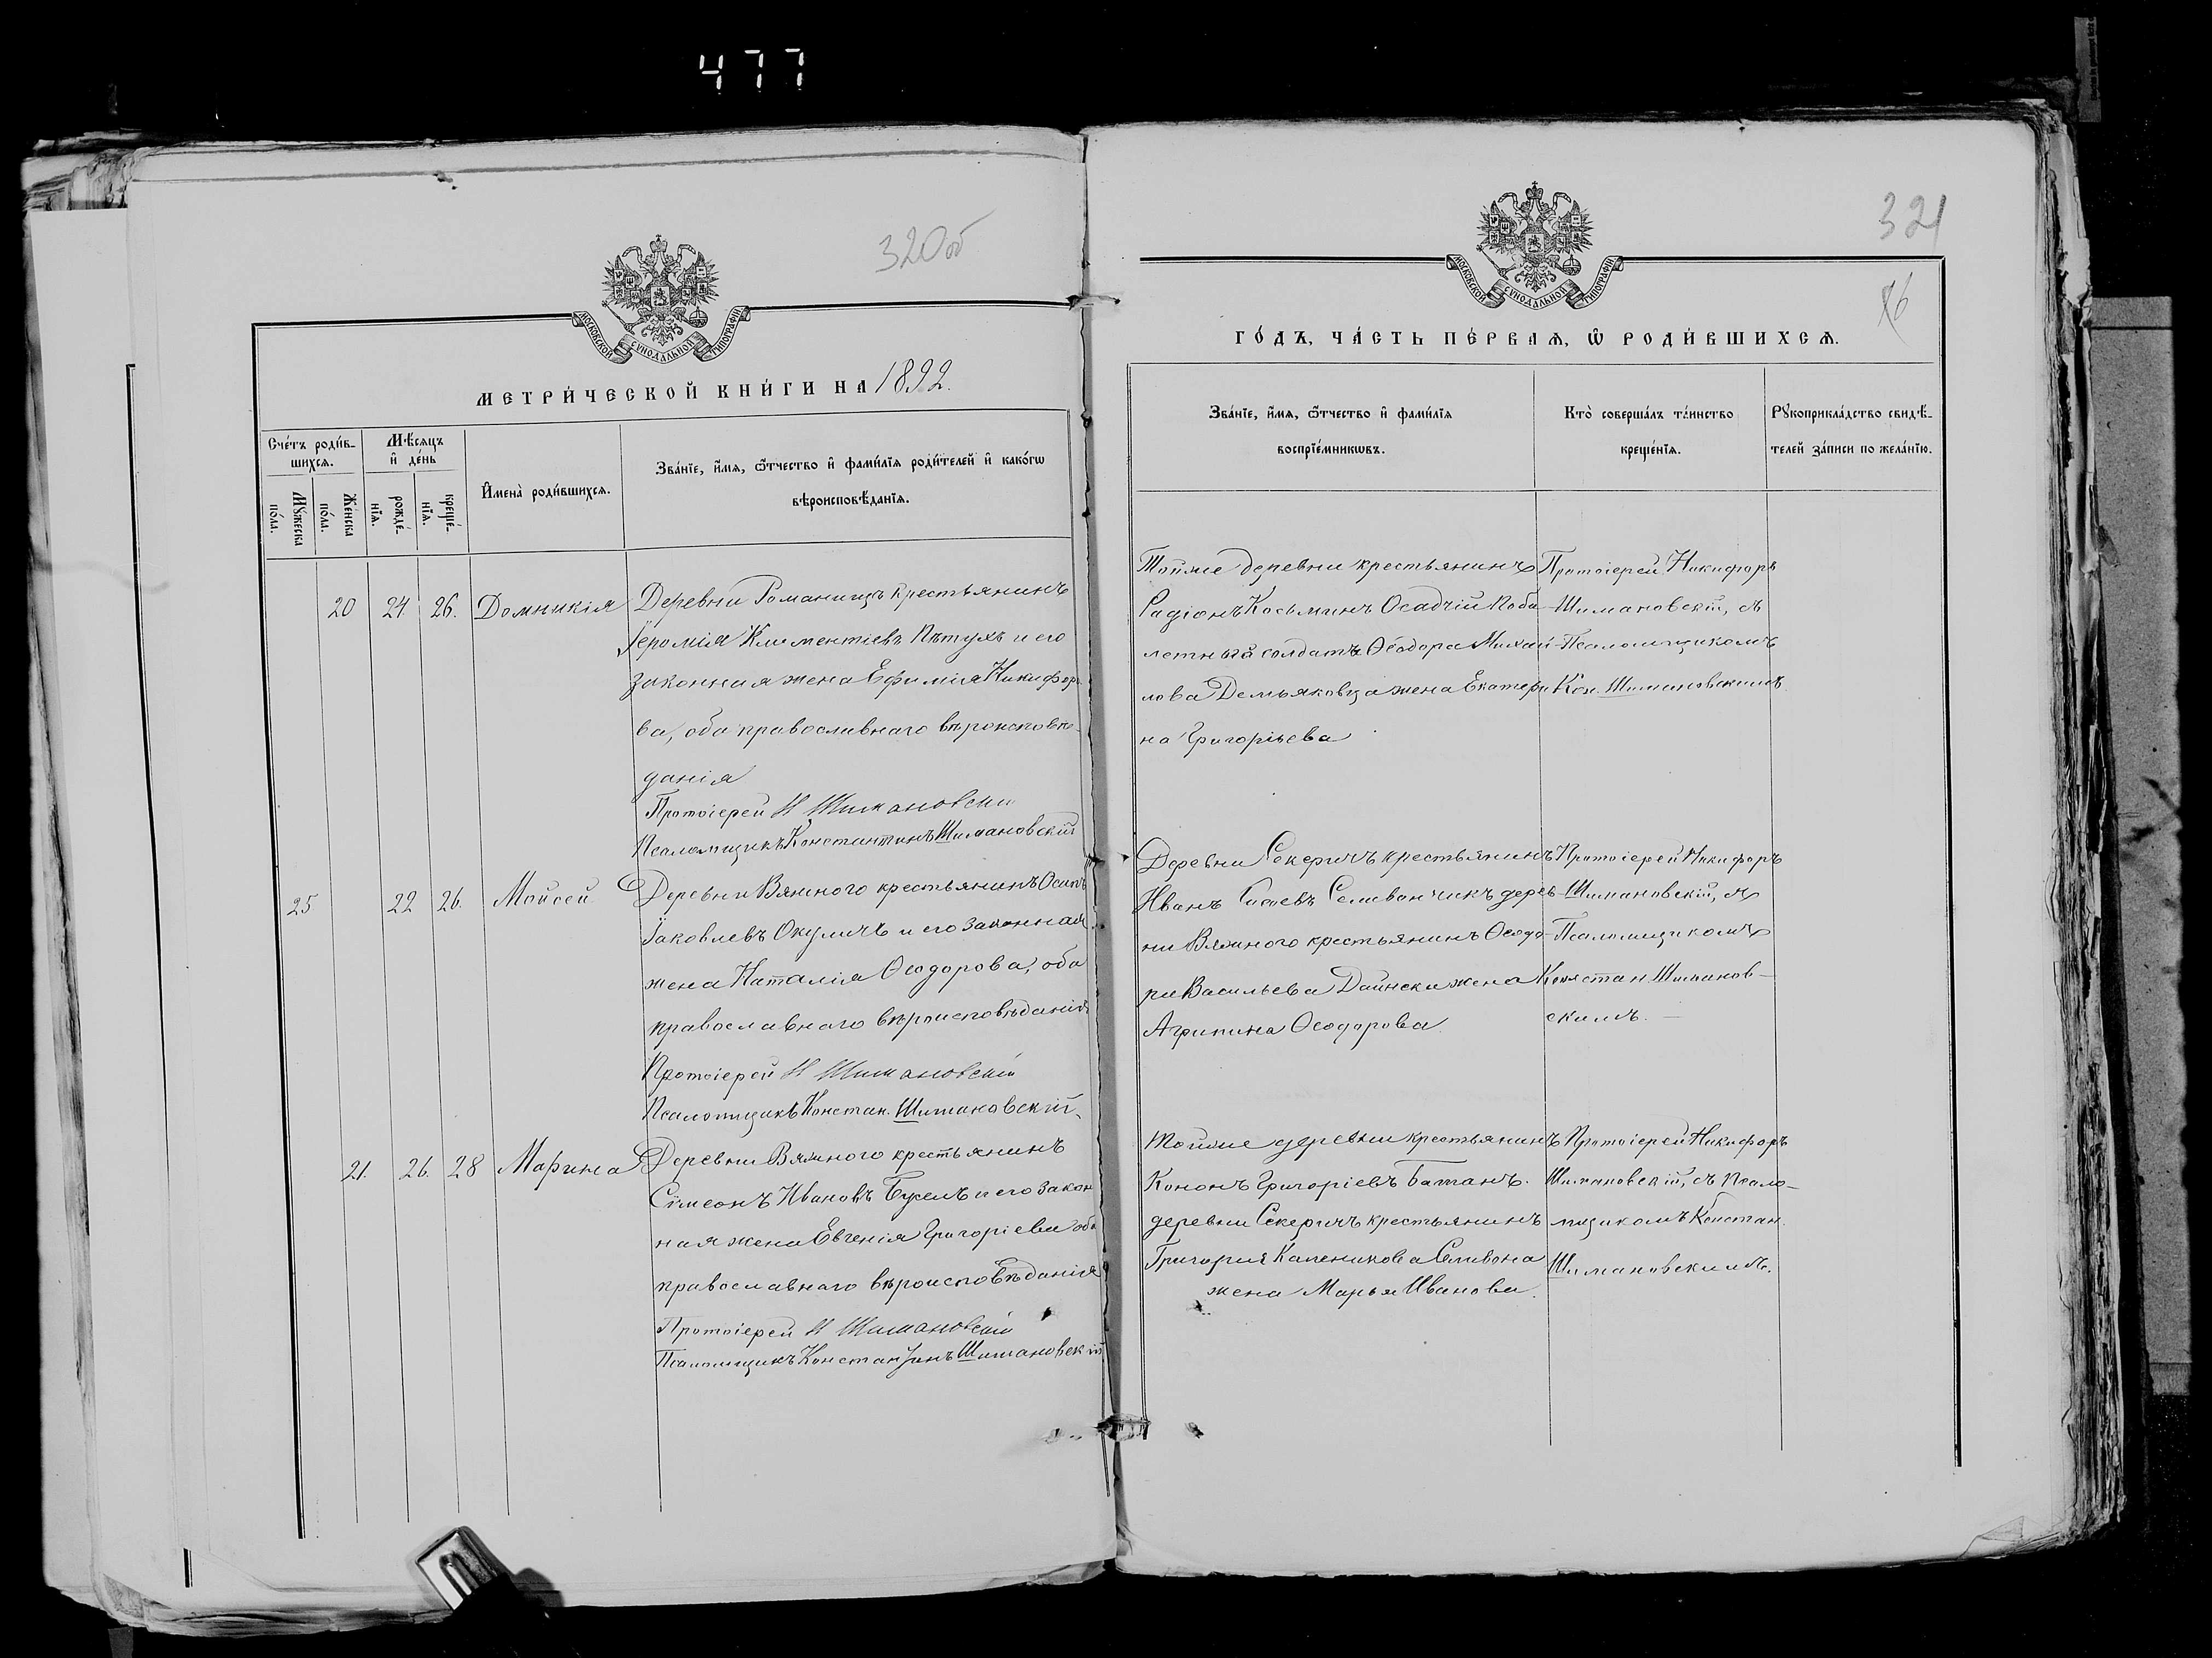 477
320об
МОСКОВСКОЙ СѴНОДАЛЬНОЙ ТИПОГРАФІИ
МЕТРИ́ЧЕСКОЙ КНИ́ГИ НА 1892.
Сче́тъ роди́в-
шихсѧ.
Мѣ́сѧцъ
и҆ де́нь
Мꙋ́жеска
по́ла.
Же́нска
по́ла.
рожде́-
нїѧ.
креще́-
нїѧ.
И҆мена̀ роди́вшихсѧ.
Зва́нїе, и҆́мѧ, ѻ҆́тчество и҆ фами́лїѧ роди́телей и҆ како́гѡ
вѣроисповѣ́данїѧ.
20 24 26. Домникія Деревни Романищъ крестьянинъ
Іеромія Климентіевъ Пѣтухъ и его
законная жена Ефимія Никифоро
ва, оба православнаго вѣроисповѣ-
данія
Протоіерей Н Шимановскій
Псаломщикъ Константинъ Шимановскій
25 22 26. Мойсей Деревни Вяжного крестьянинъ Осипъ
Іаковлевъ Окуличъ и его законная
жена Наталія Ѳеодорова, оба
православнаго вѣроисповѣданія
Протоіерей Н Шимановскій
Псаломщикъ Констан. Шимановскій.
21. 26. 28 Марина Деревни Вяжного крестьянинъ
Сімеонъ Ивановъ Буселъ и его закон
ная жена Евгенія Григоріева оба
православнаго вѣроисповѣданія
Протоіерей Н Шимановскій
Псаломщикъ Константинъ Шимановскій
321
МОСКОВСКОЙ СѴНОДАЛЬНОЙ ТИПОГРАФІИ
76
ГО́ДЪ, ЧА́СТЬ ПЕ́РВАѦ, Ѽ РОДИ́ВШИХСѦ.
Зва́нїе, и҆́мѧ, ѻ҆́тчество и҆ фами́лїѧ
воспрїе́мникѡвъ.
Кто̀ соверша́лъ та́инство
креще́нїѧ.
Рꙋкоприкла́дство свидѣ́-
телей за́писи по жела́нїю.
Тойже деревни крестьянинъ
Радіонъ Косьминъ Осадчій
солдата Ѳеодора Михай-
лова жена Екатери
на Григорьева
Протоіерей Никифоръ
Шимановскій, съ
Псаломщикомъ
Кон. Шимановскимъ
Деревни Секеричъ крестьянинъ
Иванъ Селиванчикъ дерев-
ни Вяжного крестьянина Ѳеодо-
ра Васильева жена
Агрипина Ѳеодорова.
Протоіерей Никифоръ
Шимановскій, съ
Псаломщикомъ
Констан. Шиманов-
скимъ.
Тойже деревни крестьянинъ
Кононъ Григоріевъ Батанъ.
деревни Секеричъ крестьянинъ
Григорія Каленикова Селивона
жена Марья Иванова.
Протоіерей Никифоръ
Шимановскій, съ Псало-
мщикомъ Констан.
Шимановскимъ.